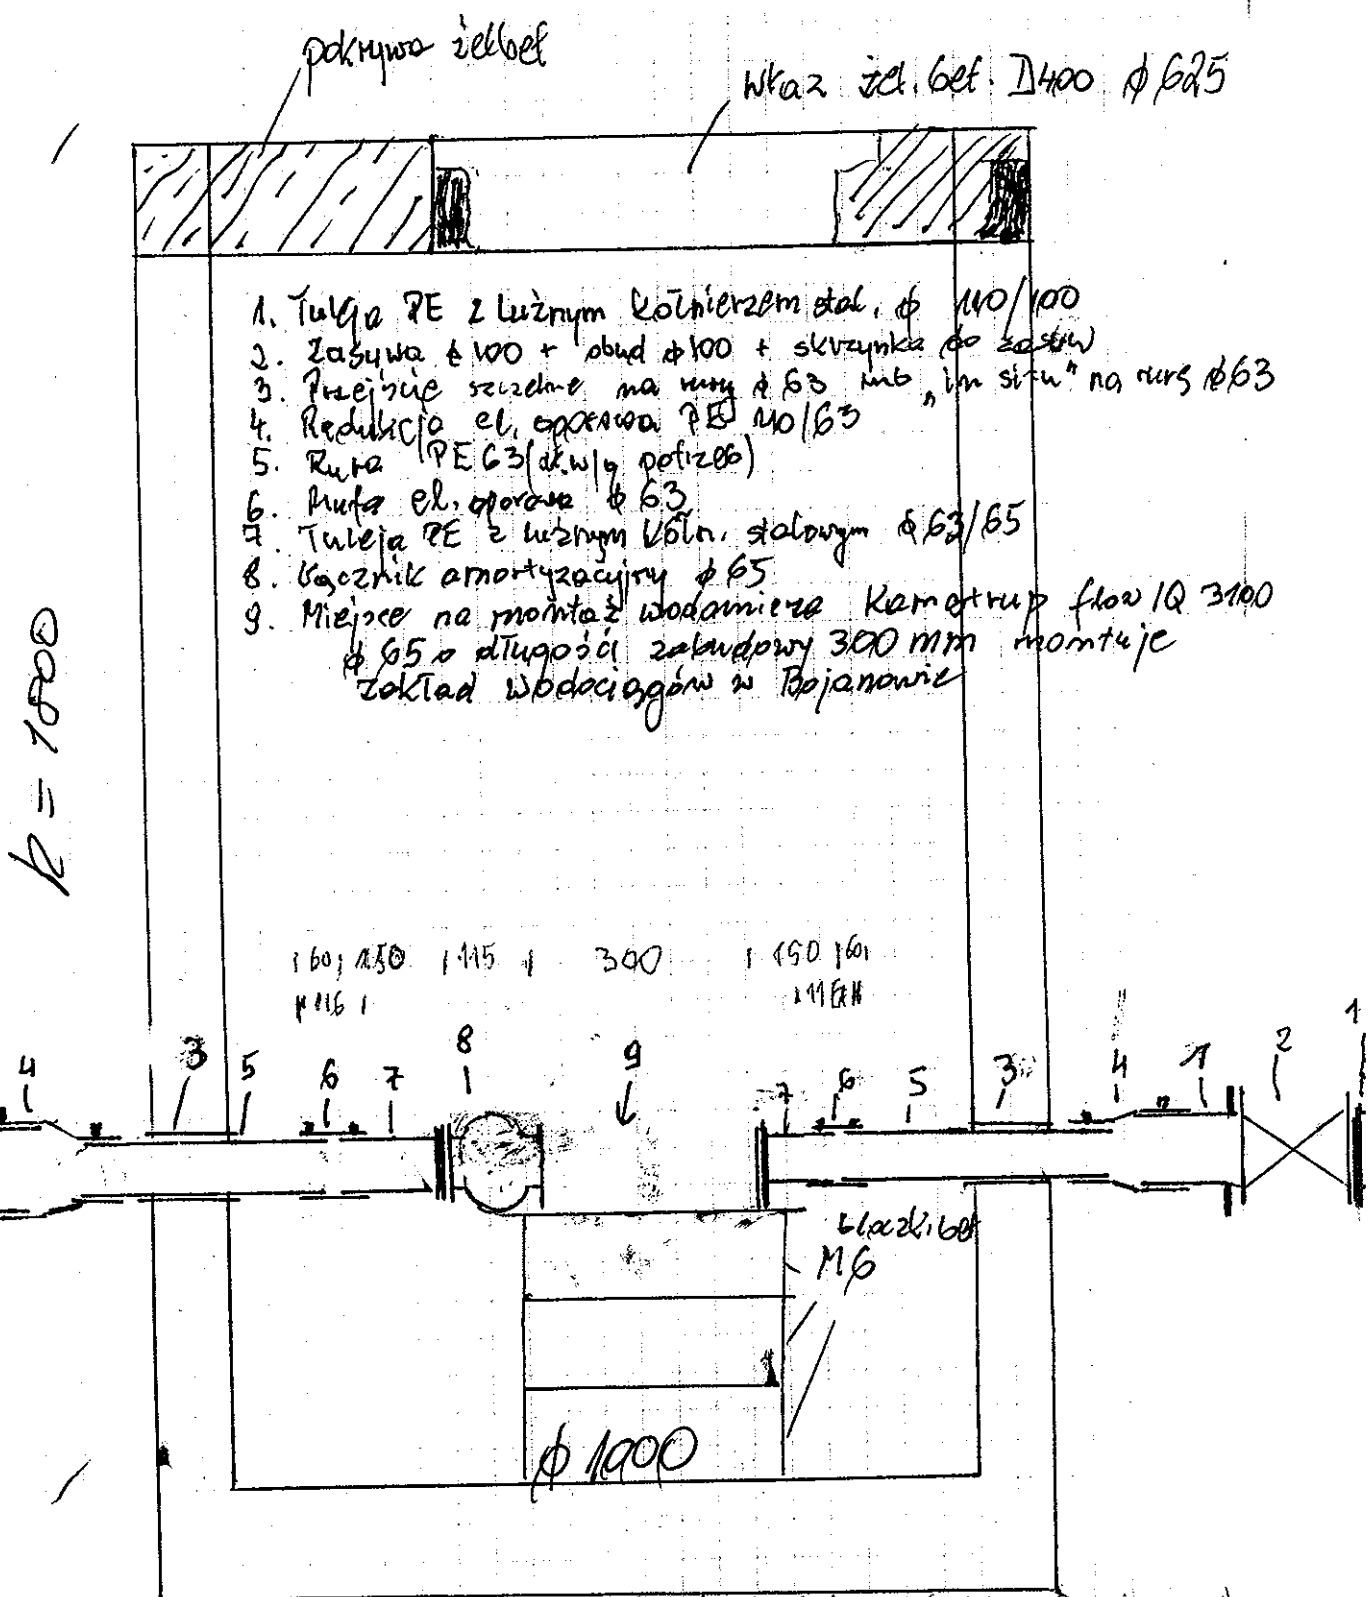 pokrywa żelbet
właz żel. bet. D400 ϕ 625
1. Tuleja PE z luźnym kołnierzem stal. ϕ 110/100
2. Zasuwa ϕ 100 + obud ϕ 100 + skrzynka do zasuw
3. Przejście szczelne na rury ϕ 63 lub „in situ" na rurę ϕ 63
4. Redukcja el. oporowa PE 110/63
5. Rura PE 63 potrzeb)
6. Mufa el. oporowa ϕ 63
7. Tuleja PE z luźnym kołn. stalowym ϕ 63/65
8. Łącznik amortyzacyjny ϕ 65
9. Miejsce na montaż wodomierza Kamstrup flow IQ 3100
ϕ 65 o długości zabudowy 300 mm montuje
zakład wodociągów w Bojanowie
h = 1800
60 150 115 300 150 60
116
4 3 5 6 7 8 9 7 6 5 3 4 1 2 1
bloczki bet
M6
ϕ 1000